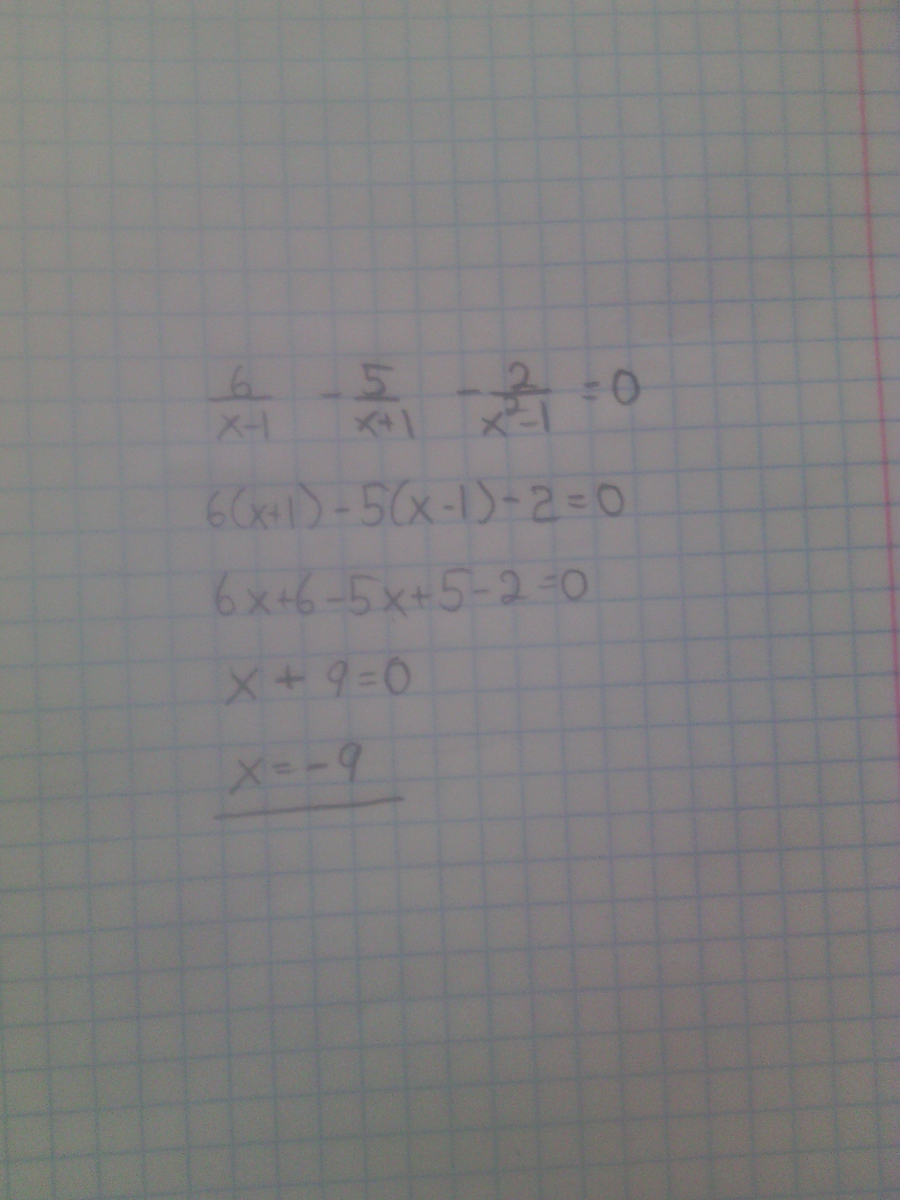 6/(x-1) - 5/(x+1) - 2/(x²-1) = 0
6(x+1)-5(x-1)-2=0
6x+6-5x+5-2=0
x+9=0
x=-9